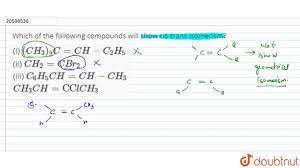 20598536
Which of the following compounds will show cis-trans isomerism.
(i) (CH₃)₃C = CH − C₂H₅ X
(ii) CH₂ = CBr₂ X
(iii) C₆H₅CH = CH − CH₃
CH₃CH = CClCH₃
C = C a
a
→ Not
show
geometrical
isomerism.
C = C
a a
C = C CH₃
H H
doubtnut